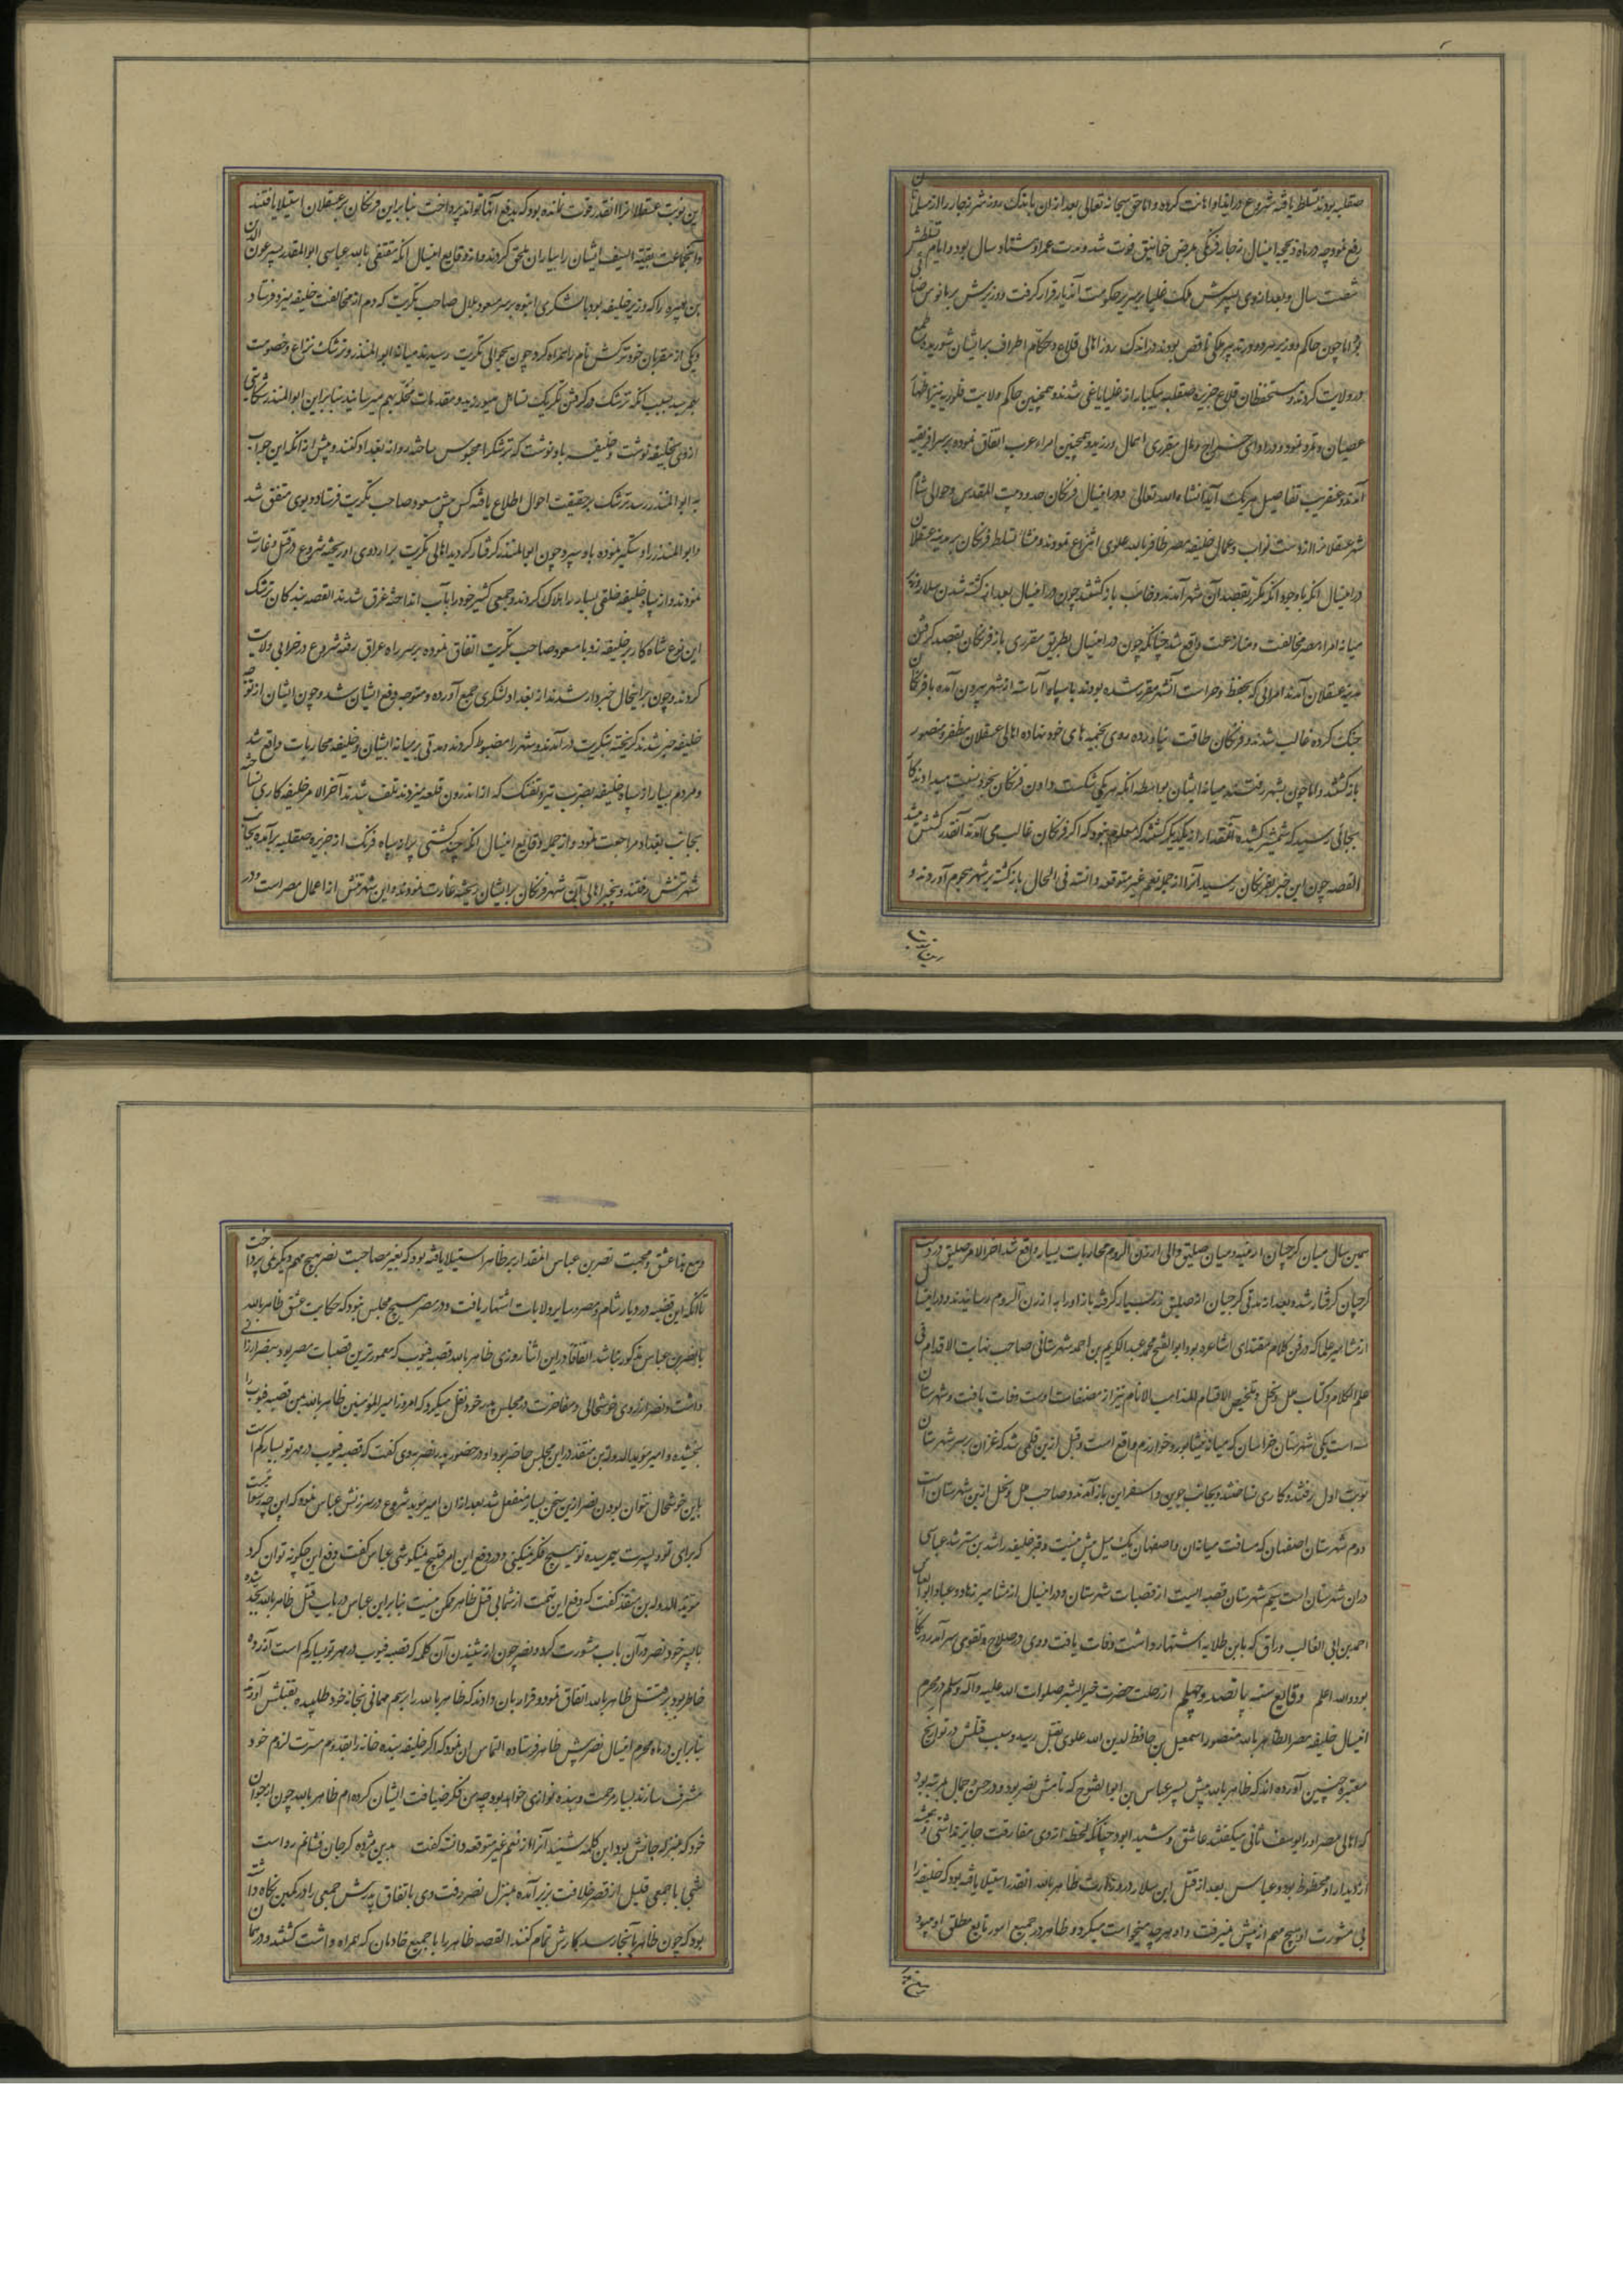 صقلیه بودند تسلط یافته شروع در ایذا و اهانت کرده و اما حق سبحانه تعالی بعد از آن باندک روز شر زجار را از مسلمانان
رفع نمود چه در ماه ذیحجه امسال زجار فرنکی بمرض خوانیق فوت شد و مدت عمر او هشتاد سال بود و ایام تسلطش
شصت سال و بعد از وی پسرش ملک غلیالم بر سریر حکومت آن دیار قرار کرفت و وزیرش
اما چون حاکم و وزیر هر دو در تدبیر ملکی ناقص بودند در اندک روز اهالی قلاع و حکام اطراف بر ایشان شوریده طمع
در ولایت کردند و مستحفظان قلاع جزیره صقلیه بیکبار از غلیالم یاغی شدند و همچنین حاکم ولایت فلوریه نیز اظهار
عصیان و تمرد نمود و در ادای خراج و مال مقرری اهمال ورزید و همچنین امراء عرب اتفاق نموده بر سر افریقیه
آمدند و عنقریب تفاصیل هر یک آید انشاء الله تعالی و در امسال فرنکان حدود بیت المقدس و حوالی شام
شهر عسقلانرا از دست نواب و عمال خلیفه مصر ظافر بالله علوی انتزاع نمودند و منشا تسلط فرنکان بر مدینه عسقلان
در امسال آنکه با وجود آنکه مکرر بقصد آن شهر آمدند و خایب باز کشتند چون در امسال بعد از کشته شدن سلار وزیر
میانه امراء مصر مخالفت و منازعت واقع شد چنانکه چون در امسال بطریق مقرری باز فرنکان بقصد کرفتن
مدینه عسقلان آمدند امرائی که بحفظ و حراست آن شهر مقرر شده بودند با سپاه آراسته از شهر بیرون آمده با فرنکان
جنک کرده غالب شدند و فرنکان طاقت نیاورده روی بخیمه های خود نهاده اهالی عسقلان مظفر و منصور
باز کشتند و اما چون بشهر رفتند میانه ایشان بواسطه آنکه هر یکی شکست دادن فرنکان بخود نسبت میدادند کار
بجائی رسید که شمشیر کشیده آنقدر از یکدیکر کشتند که معلوم نبود که اکر فرنکان غالب می آمدند آنقدر کشش میشد
القصه چون این خبر بفرنکان رسید آنرا از جمله نعم غیر مترقبه دانسته فی الحال باز کشته بر شهر هجوم آوردند و
درین نوبت
ین نوبت عسقلانرا آنقدر قوت نمانده بود که بدفع آنها تواند پرداخت بنابراین فرنکان بر عسقلان استیلا یافتند
و آنجماعت بقیه السیف ایشان را بیاران ملحق کردند و از وقایع امسال آنکه مقتفی بالله عباسی ابو المظفر پسر عون الدین
بن هبیره را که وزیر خلیفه بود با لشکری انبوه بر سر مسعود بلال صاحب تکریت که دم از مخالفت خلیفه میزد فرستاد
و یکی از مقربان خود ترشک نام را همراه کرد چون بحوالی تکریت رسیدند میانه ابو المنذر و ترشک نزاع و خصومت
بهم رسید بسبب آنکه ترشک در کرفتن تکریت تساهل میورزید و مقدمات مخله بهم میرسانید بنابراین ابو المنذر شکایتی
از وی بخلیفه نوشت و خلیفه باو نوشت که ترشک را محبوس ساخته روانه بغداد کنند و پیش از آنکه این جواب
به ابو المنذر رسد ترشک بر حقیقت احوال اطلاع یافته کس پیش مسعود صاحب تکریت فرستاد و بوی متفق شد
و ابو المنذر را دستکیر نموده باو سپرد و چون ابو المنذر کرفتار کردید اهالی تکریت بر اردوی او ریخته شروع در قتل و غارت
نمودند و از سپاه خلیفه خلقی بسیار را هلاک کردند و جمعی کثیر خود را بآب انداخته غرق شدند القصه بندکان ترشک
این نوع شاه کار بر خلیفه زد با مسعود صاحب تکریت اتفاق نموده بر سر راه عراق رفته شروع در خرابی ولایت
کردند و چون بر اینحال خبردار شدند از بغداد لشکری جمع آورده و متوجه دفع ایشان شد و چون ایشان از توجه
خلیفه خبر شدند کریخته بتکریت در آمدند و شهر را مضبوط کردند و مدتی بر میانه ایشان و خلیفه محاربات واقع شد
و مردم بسیار از سپاه خلیفه بضرب تیر و تفنک که از اندرون قلعه میزدند تلف شدند آخر الامر خلیفه کاری نساخته
بجانب بغداد مراجعت نمود و از جمله وقایع امسال آنکه چند کشتی پر از سپاه فرنک از جزیره صقلیه بر آمده بجانب
شهر تنیس رفتند و بیخبر اهالی آن شهر فرنکان بر ایشان ریخته غارت نمودند و این شهر تنیس از اعمال مصر است و در
همین سال میان کرجیان ارمنیه و میان صلیق والی ارزن الروم محاربات بسیار واقع شد آخر الامر صلیق در دست
کرجیان کرفتار شد و بعد از مدتی کرجیان از صلیق زر بسیار کرفته باز او را به ارزن الروم رسانیدند و در امسال
از مشاهیر علما که در فن کلام مقتدای اشاعره بود ابو الفتح محمد عبدالکریم بن احمد شهرستانی صاحب نهایت الاقدام فی
علم الکلام و کتاب ملل و نحل و تلخیص الاقسام لمذاهب الانام نیز از مصنفات اوست وفات یافت و شهرستان
سه است یکی شهرستان خراسان که میانه نیشابور و خوارزم واقع است و قبل ازین قلمی شد که غزان بر سر شهرستان
نوبت اول رفتند و کاری نساختند و بجانب جوین و اسفراین باز آمدند و صاحب ملل و نحل ازین شهرستان است
دوم شهرستان اصفهان که مسافت میانه آن و اصفهان یک میل بیش نیست و قبر خلیفه راشد بن مسترشد عباسی
در آن شهرستان است سیم شهرستان قصبه ایست از قصبات شهرستان و در امسال از مشاهیر زهاد و عباد ابو العباس
احمد بن ابی الغالب وراق که بابن طلایه اشتهار داشت وفات یافت و وی در صلاح و تقوی سر آمد روزکار
بود والله اعلم وقایع سنه پانصد و چهلم از رحلت حضرت خیر البشر صلوات الله علیه و آله و سلم در محرم
امسال خلیفه مصر الظاهر بالله منصور اسمعیل بن حافظ لدین الله علوی بقتل رسید و سبب قتلش در تواریخ
معتبره چنین آورده اند که ظاهر بالله پیش پسر عباس بن ابو الفتوح که نامش نصر بود و در حسن و جمال بمرتبه بود
که اهالی مصر او را یوسف ثانی میکفتند عاشق و شیدا بود چنانکه لحظه از وی مفارقت جایز نداشتی و همیشه
از دیدار او محظوظ بود و عباس بعد از قتل ابن سلار در وزارت ظاهر بالله آنقدر استیلا یافته بود که خلیفه را
بی مشورت او هیچ مهم از پیش نمیرفت و او هر چه میخواست میکرد و ظاهر در جمیع امور تابع مطلق او میبود
و مع هذا عشق و محبت نصر بن عباس آنقدر بر ظاهر استیلا یافته بود که بغیر مصاحبت نصر بهیچ مهم دیکر نمی پرداخت
تا آنکه این قضیه در دیار شام و مصر و سایر ولایات اشتهار یافت و در مصر هیچ مجلس نبود که حکایت عشق ظاهر بالله
با نصر بن عباس مذکور نباشد اتفاقا در این اثنا روزی ظاهر بالله قصبه قیوب که معمورترین قصبات مصر بود بنصر ارزانی
داشت و نصر از روی خوشحالی و مفاخرت در مجلس پدر خود نقل میکرد که امروز امیر المؤمنین ظاهر بالله بمن قصبه قیوب را
بخشیده و امیر مؤید الدوله بن منقذ در این مجلس حاضر بود او در حضور پدر نصر بوی کفت که قصبه قیوب در مهر تو بسیار کم است
باین خوشحال نتوان بودن نصر ازین سخن بسیار منفعل شد بعد از آن امیر مؤید شروع در سرزنش عباس نمود که این چه رسوائیست
که برای تو و پسرت بهم رسیده تو هیچ فکر نمیکنی و در دفع این امر قبیح نمیکوشی عباس کفت دفع این چکونه توان کرد
مؤید الدوله بن منقذ کفت که دفع این تهمت از شما بی قتل ظاهر ممکن نیست بنابراین عباس در باب قتل ظاهر بالله بجد شده
با پسر خود نصر در آن باب مشورت کرد و نصر چون از شنیدن آن کلمه که قصبه قیوب در مهر تو بسیار کم است آزرده
خاطر بود بر قتل ظاهر بالله اتفاق نمود و قرار بآن دادند که ظاهر بالله را برسم مهمانی بخانه خود طلبیده بقتلش آورند
بنابراین در ماه محرم امسال نصر پیش ظاهر فرستاده التماس آن نمود که اکر خلیفه بنده خانه را بقدوم مسرت لزوم خود
مشرف سازند بسیار مرحمت و بنده نوازی خواهد بود چه من فکر ضیافت ایشان کرده ام ظاهر بالله چون از جوان
خود که بمنزله جانش بود این کلمه شنید آنرا از نعم غیر مترقبه دانسته کفت بدین مژده کر جان فشانم رواست
شبی با جمعی قلیل از قصر خلافت بزیر آمده بمنزل نصر رفت و وی باتفاق پدرش جمعی را در کمین نکاه داشته
بود که چون ظاهر بآنجا رسد کارش تمام کنند القصه ظاهر را با جمیع خادمان که همراه داشت کشتند و در همان